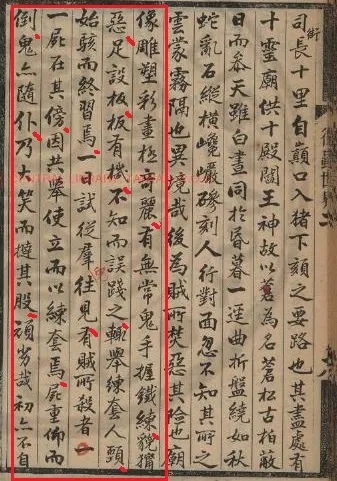 司長十里自巔口入猪下頦之要路也其盡處有
衖
十霊廟供十殿閻王神故以蒼為名蒼松古柏蔽
日而参天雖白晝同於昏暮一逕曲折盤繞如秋
蛇亂石縱橫巉巗磣刻人行對面忽不知其所之
雲蒙霧隔也異境哉後為賊所焚惡其險也廟
像雕塑彩畫極奇麗有無常鬼手握鐵練貌獰
惡足設板板有機不知而誤踐之輙舉練套人頭
始駭而終習焉一日試從羣往見有賊所殺者一
一屍在其傍因共舉使立而以練套焉屍重仰而
倒鬼亦隨仆乃大笑而撻其股頑劣哉初亦不自